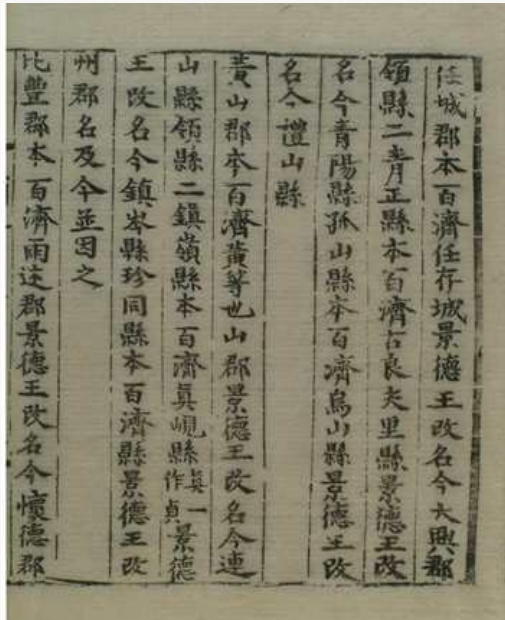 任城郡本百濟任存城景德王改名今大興郡
領縣二青正縣本百濟古良夫里縣景德王改
名今青陽縣孤山縣本百濟烏山縣景德王改
名今禮山縣
黃山郡本百濟黃等也山郡景德王改名今連
山縣領縣二鎮嶺縣本百濟眞峴縣眞一作貞景德
王改名今鎮岑縣珍同縣本百濟縣景德王改
州郡名及今並因之
比豐郡本百濟雨述郡景德王改名今懷德郡